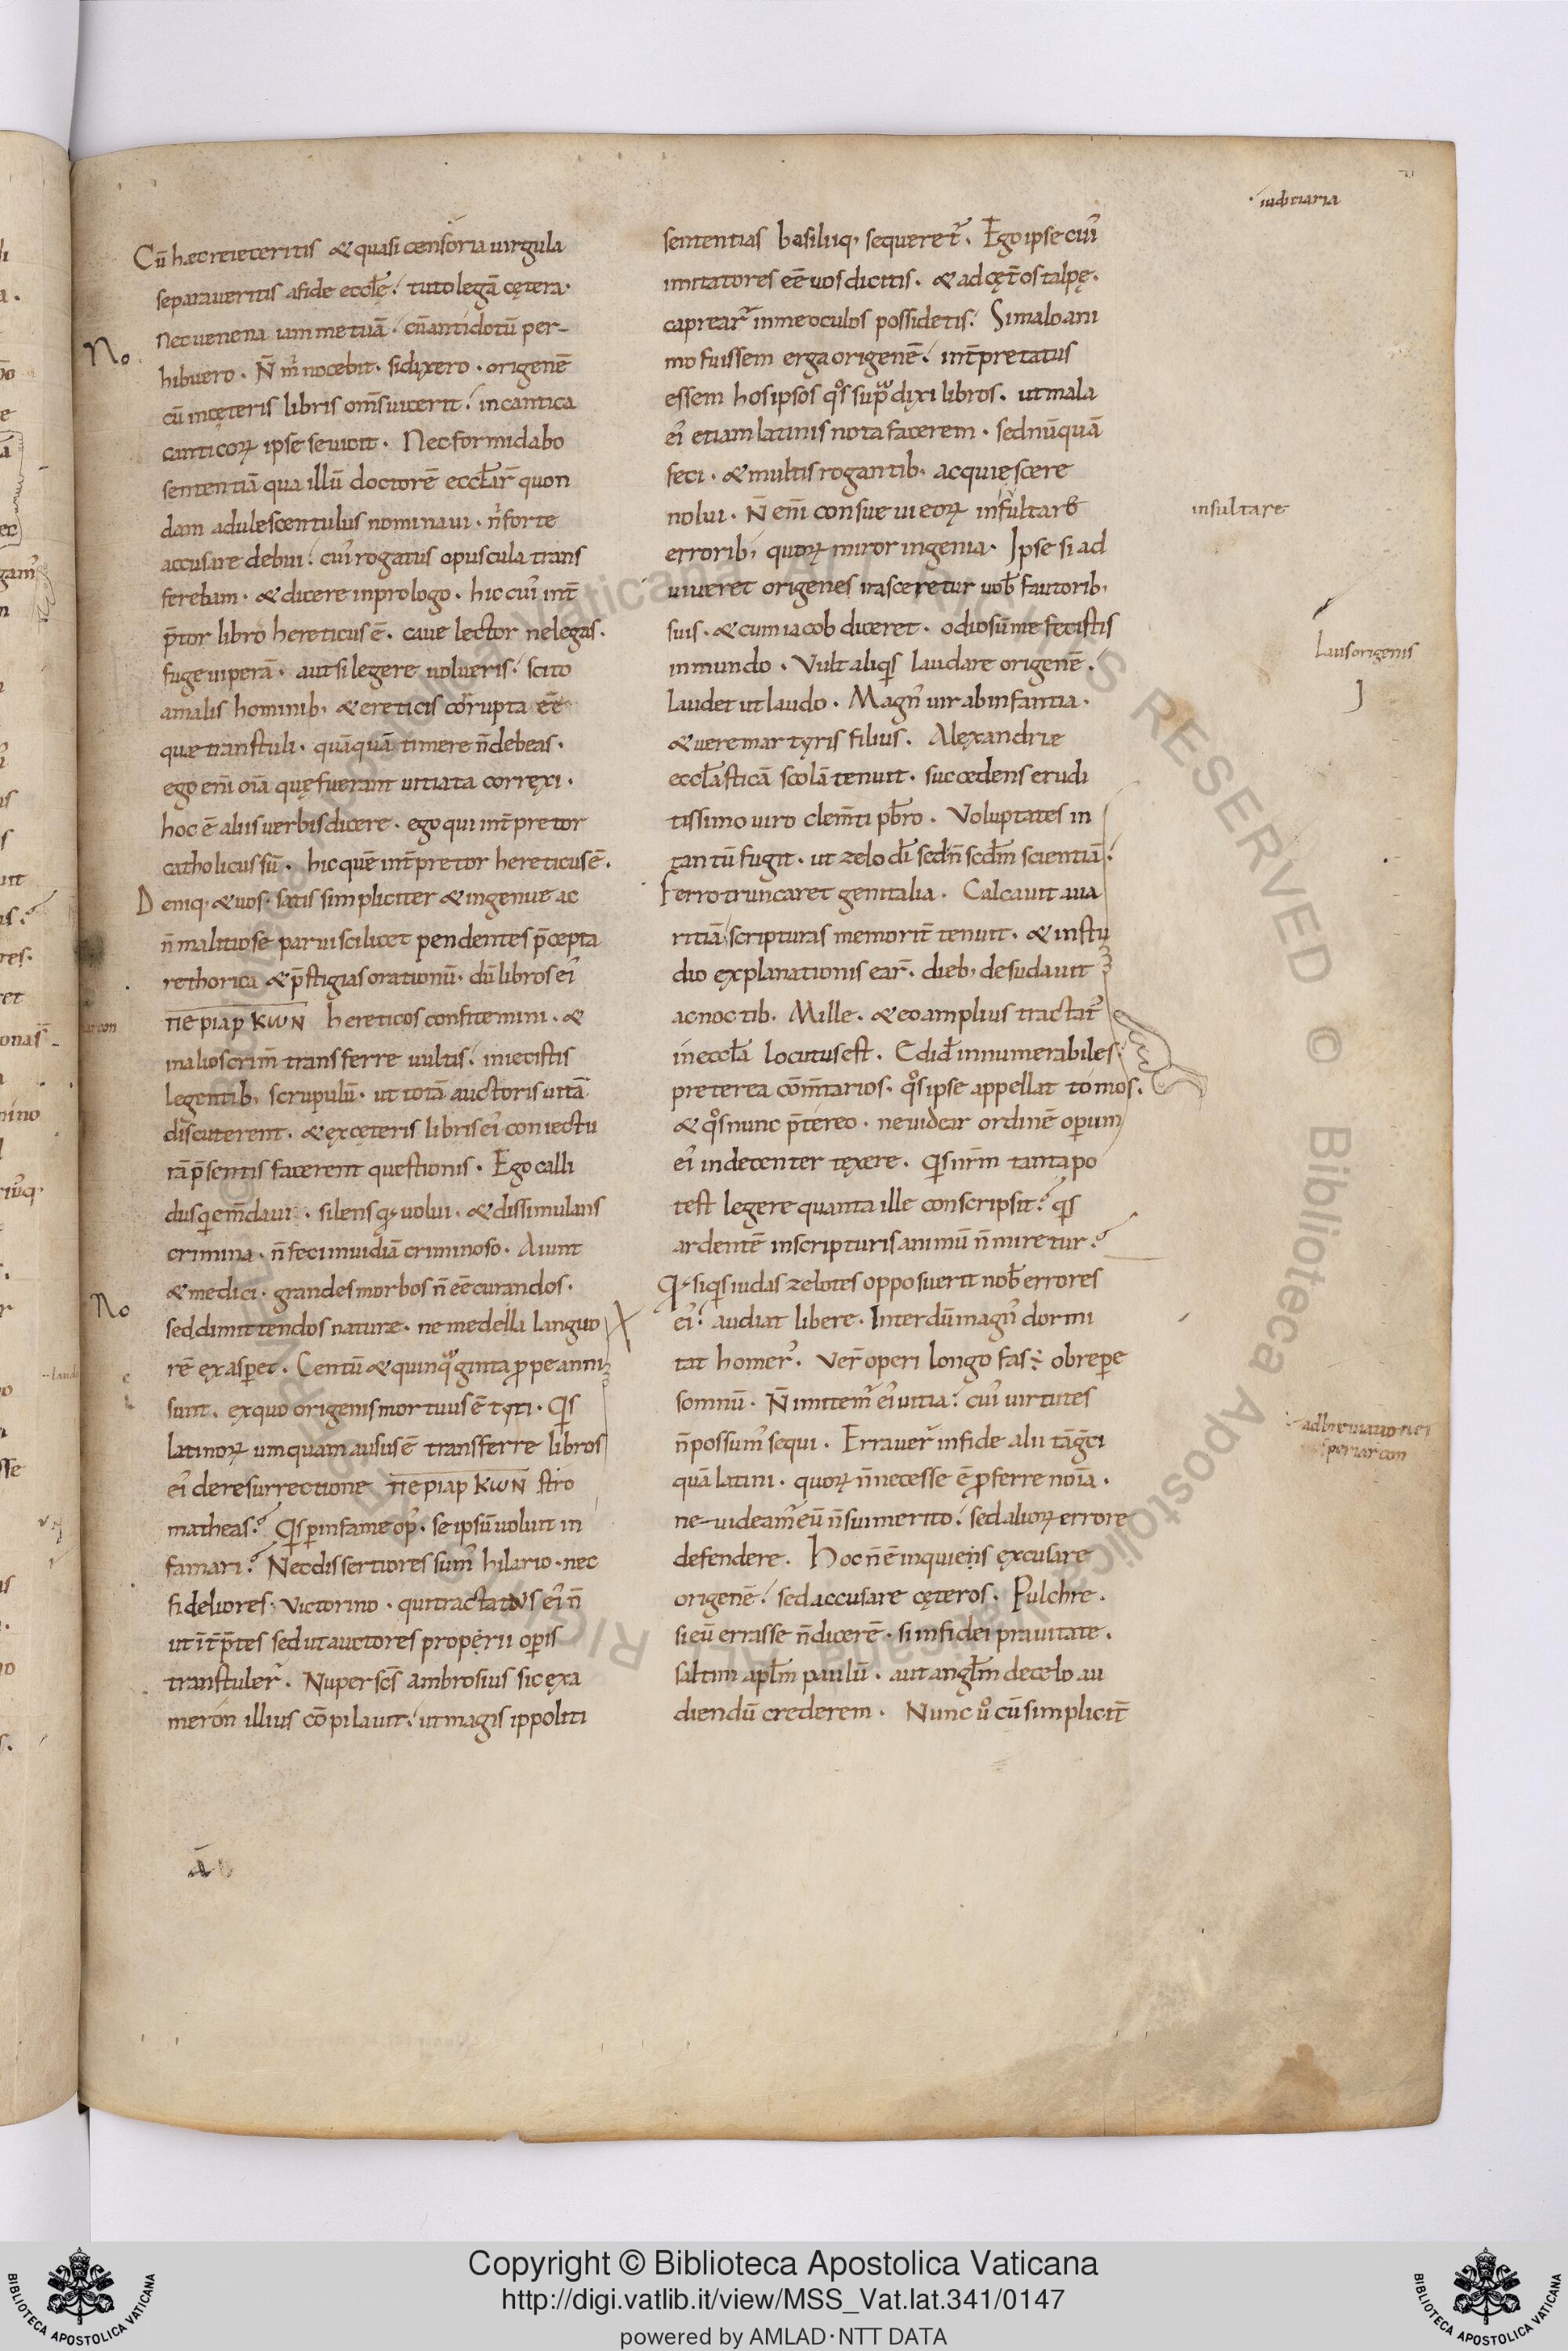 Cū hæc reieceritis & quasi censoria uirgula
separaueritis a fide eccłę: tuto legā cętera.
nec uenena iam metuā. cū antidotū per-
No
hibuero. N̄ m̄ nocebit. si dixero. origenē
cū in cęteris libris om̄s uicerit: in cantica
canticoꝝ ipse se uicit. Nec formidabo
sententiā qua illū doctorē eccłar̄ quon
dam adulescentulus nominaui. n̄ forte
accusare debui: cui' rogatus opuscula trans
ferebam. & dicere in prologo. hic cui' int̄
p̄tor libro hereticus ē. caue lector ne legas.
fuge uiperā. aut si legere uolueris: scito
a malis hominib; & ereticis corrupta eē
quæ transtuli. quāquā timere n̄ debeas.
ego eni oīa quę fuerant uitiata correxi.
hoc ē aliis uerbis dicere. ego qui int̄pretor
catholicus sū. hic quē int̄pretor hereticus ē.
Deniq; & uos. satis simpliciter & ingenue ac
n̄ malitiose parui scilicet pendentes p̄cepta
rethorica & p̄stigias orationū. dū libros ei'
περιαρκων hereticos confitemini. &
in alios crim̄ transferre uultis: iniecistis
legentib; scrupulū. ut totā auctoris uitā
discuterent. & ex cęteris libris ei' coniectu
rā p̄sentis facerent questionis. Ego calli
dus qi em̄daui. silens qꝫ uolui. & dissimulans
crimina. n̄ feci inuidiā criminoso. Aiunt
& medici. grandes morbos n̄ eē curandos.
No
sed dimittendos naturæ. ne medella languo
rē exasp̄et. Centū & quinqᵃginta ꝓpe anni
sunt. ex quo origenis mortuus ē tyri. Qis
latinoꝝ umquam ausus ē transferre libros
ei' de resurrectione περιαρκων stro
matheas? Qis p̄ infame op'. se ipsū uoluit in
famari? Nec dissertiores sum' hilario. nec
fideliores uictorino. qui tractatus ei' n̄
ut īt̄p̄tes sed ut auctores proprii op̄is
transtuler'. Nuper sc̄s ambrosius sic exa
meron illius cōpilauit: ut magis ippoliti
iuditiaria
sententias basiliiq; sequeret'. Ego ipse cui'
imitatores eē uos dicitis. & ad cęt̄os talpę.
caprear' in me oculos possidetis. Si malo ani
mo fuissem erga origenē: int̄pretatus
essem hos ipsos qos supᵃ dixi libros. ut mala
ei' etiam latinis nota facerem. sed nūquā
feci. & multis rogantib; acquięscere
nolui. N̄ eni consueui eoꝝ insultare
insultare
errorib; quoꝝ miror ingenia. Ipse si ad
uiueret origenes irasceretur uob' fautorib;
suis. & cum iacob diceret. odiosū me fecistis
in mundo. Vult aliqis laudare origenē.
Laus origenis
laudet ut laudo. Magn' uir ab infantia.
& uere martyris filius. Alexandrie
eccłasticā scolā tenuit. succedens erudi
tissimo uiro clem̄ti pb̄ro. Voluptates in
tantū fugit. ut zelo dī sed n̄ scd̄m scientiā:
ferro truncaret genitalia. Calcauit aua
ritiā: scripturas memorit̄ tenuit. & in stu
dio explanationis ear̄. dieb; desudauit
ac noctib. Mille. & eo amplius tractat'
in eccła locutus est. Edid' innumerabiles
preterea cōm̄tarios. qos ipse appellat tomos.
& qos nunc p̄tereo. ne uidear ordinē operum
ei' indecenter texere. Qis nr̄m tanta po
test legere quanta ille conscripsit? qis
ardentē in scripturis animū n̄ miretur?
Qꝫ si qis iudas zelotes opposuerit nob' errores
ei': audiat libere. Interdū magn' dormi
tat homer'. Ver' operi longo fas ÷ obrep̄e
somnū. N̄ imitem' ei' uitia: cui' uirtutes
n̄ possum' sequi. Errauer' in fide alii tā gr̄ci
adbreuiatio nei
periarcon
quā latini. quoꝝ n̄ necesse ē ꝓferre noīa.
ne uideam' eū n̄ sui merito: sed alioꝝ errore
defendere. Hoc n̄ ē inquiens excusare
origenē: sed accusare cęteros. Pulchre.
si eū errasse n̄ dicerē. si in fidei prauitate.
saltim apłm paulū. aut angłm de cęlo au
diendū crederem. Nunc uo cū simplicit̄
Copyright © Biblioteca Apostolica Vaticana
http://digi.vatlib.it/view/MSS_Vat.lat.341/0147
powered by AMLAD·NTT DATA
BIBLIOTECA APOSTOLICA VATICANA
BIBLIOTECA APOSTOLICA VATICANA